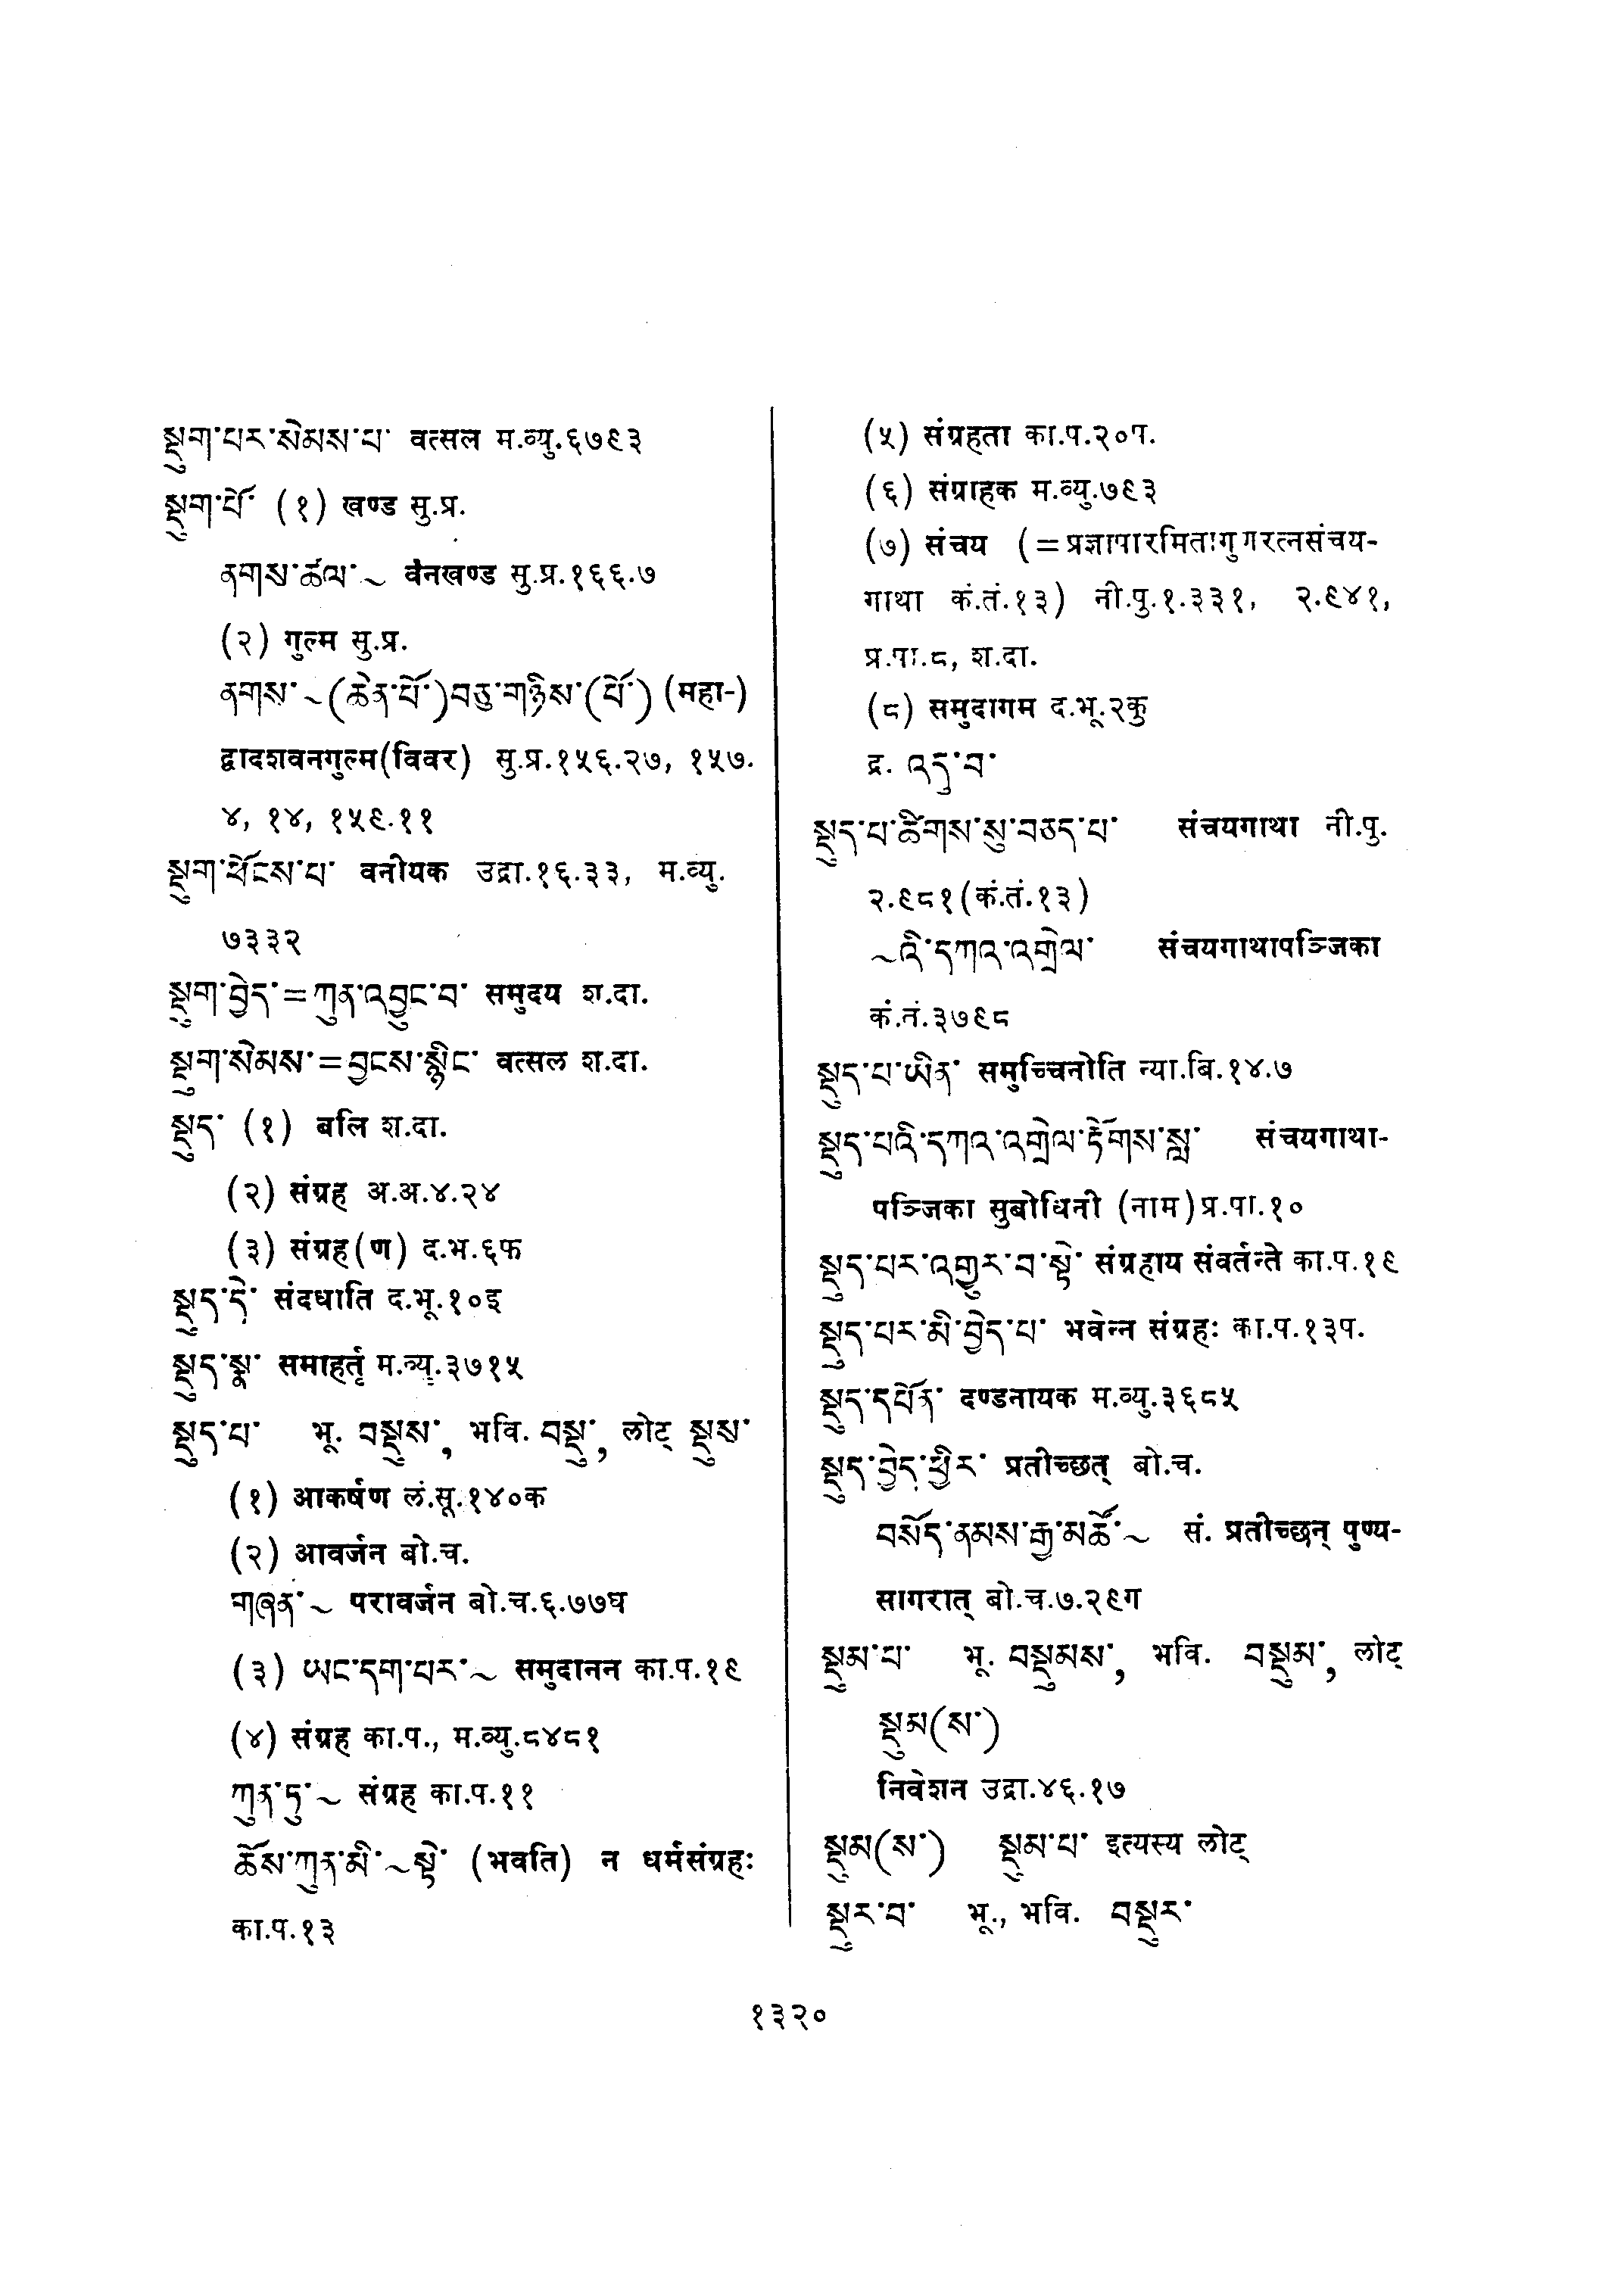 སྡུག་པར་སེམས་པ་ वत्सल म.व्यु.६७९३
སྡུག་པོ་ (१) खण्ड सु.प्र.
ནགས་ཚལ་~ वनखण्ड सु.प्र.१६६.७
(२) गुल्म सु.प्र.
ནགས་~(ཆེན་པོ་)བཅུ་གཉིས་(པོ་) (महा-)
द्वादशवनगुल्म(विवर) सु.प्र.१५६.२७, १५७.
४, १४, १५९.११
སྡུག་ཕོངས་པ་ वनीयक उद्रा.१६.३३, म.व्यु.
७३३२
སྡུག་བྱེད་=ཀུན་འབྱུང་བ་ समुदय श.दा.
སྡུག་སེམས་=བྱངས་སྙིང་ वत्सल श.दा.
སྡུད་ (१) बलि श.दा.
(२) संग्रह अ.अ.४.२४
(३) संग्रह(ण) द.भ.६फ
སྡུད་དེ་ संदधाति द.भू.१०इ
སྡུད་སྣ་ समाहर्तृ म.व्यु.३७१५
སྡུད་པ་ भू. བསྡུས་, भवि. བསྡུ་, लोट् སྡུས་
(१) आकर्षण लं.सू.१४०क
(२) आवर्जन बो.च.
གཞན་~ परावर्जन बो.च.६.७७घ
(३) ཡང་དག་པར་~ समुदानन का.प.१९
(४) संग्रह का.प., म.व्यु.८४८१
ཀུན་ཏུ་~ संग्रह का.प.११
ཆོས་ཀུན་མི་~སྟེ་ (भवति) न धर्मसंग्रहः
का.प.१३
(५) संग्रहता का.प.२०प.
(६) संग्राहक म.व्यु.७९३
(७) संचय (=प्रज्ञापारमितागुणरत्नसंचय-
गाथा कं.तं.१३) नी.पु.१.३३१, २.९४१,
प्र.पा.८, श.दा.
(८) समुदागम द.भू.२कु
द्र. འདུ་བ་
སྡུད་པ་ཚིགས་སུ་བཅད་པ་ संचयगाथा नी.पु.
२.९८१(कं.तं.१३)
~འི་དཀའ་འགྲེལ་ संचयगाथापञ्जिका
कं.तं.३७९८
སྡུད་པ་ཡིན་ समुच्चिनोति न्या.बि.१४.७
སྡུད་པའི་དཀའ་འགྲེལ་རྟོགས་སླ་ संचयगाथा-
पञ्जिका सुबोधिनी (नाम)प्र.पा.१०
སྡུད་པར་འགྱུར་བ་སྟེ་ संग्रहाय संवर्तन्ते का.प.१९
སྡུད་པར་མི་བྱེད་པ་ भवेन्न संग्रहः का.प.१३प.
སྡུད་དཔོན་ दण्डनायक म.व्यु.३६८५
སྡུད་བྱེད་ཕྱིར་ प्रतीच्छत् बो.च.
བསོད་ནམས་རྒྱ་མཚོ་~ सं. प्रतीच्छन् पुण्य-
सागरात् बो.च.७.२९ग
སྡུམ་པ་ भू. བསྡུམས་, भवि. བསྡུམ་, लोट्
སྡུམ(ས་)
निवेशन उद्रा.४६.१७
སྡུམ(ས་) སྡུམ་པ་ इत्यस्य लोट्
སྡུར་བ་ भू., भवि. བསྡུར་
१३२०